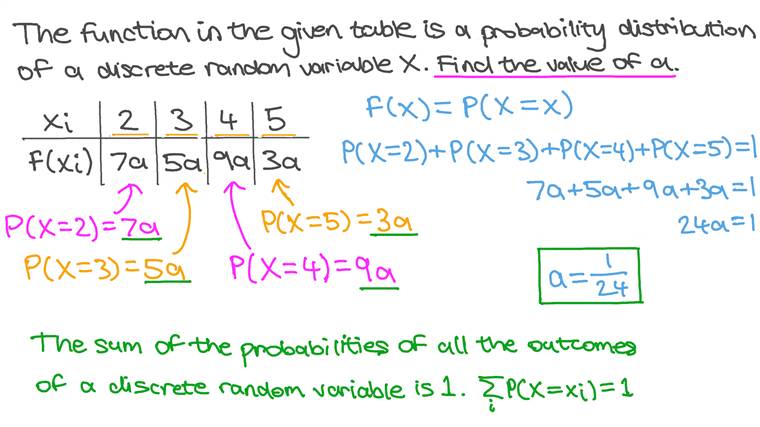 The function in the given table is a probability distribution
of a discrete random variable X. Find the value of a.
xi 2 3 4 5
F(xi) 7a 5a 9a 3a
F(x)=P(X=x)
P(X=2)+P(X=3)+P(X=4)+P(X=5)=1
7a+5a+9a+3a=1
24a=1
a=1/24
P(X=2)=7a
P(X=5)=3a
P(X=3)=5a
P(X=4)=9a
The sum of the probabilities of all the outcomes
of a discrete random variable is 1. ∑i P(X=xi)=1